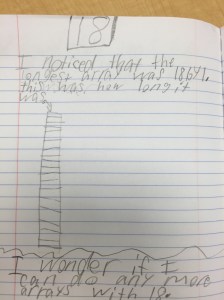 18
I noticed that the
longest array was 18 by 1.
this was how long it
was.
I wonder if I
can do any more
arrays with 18.